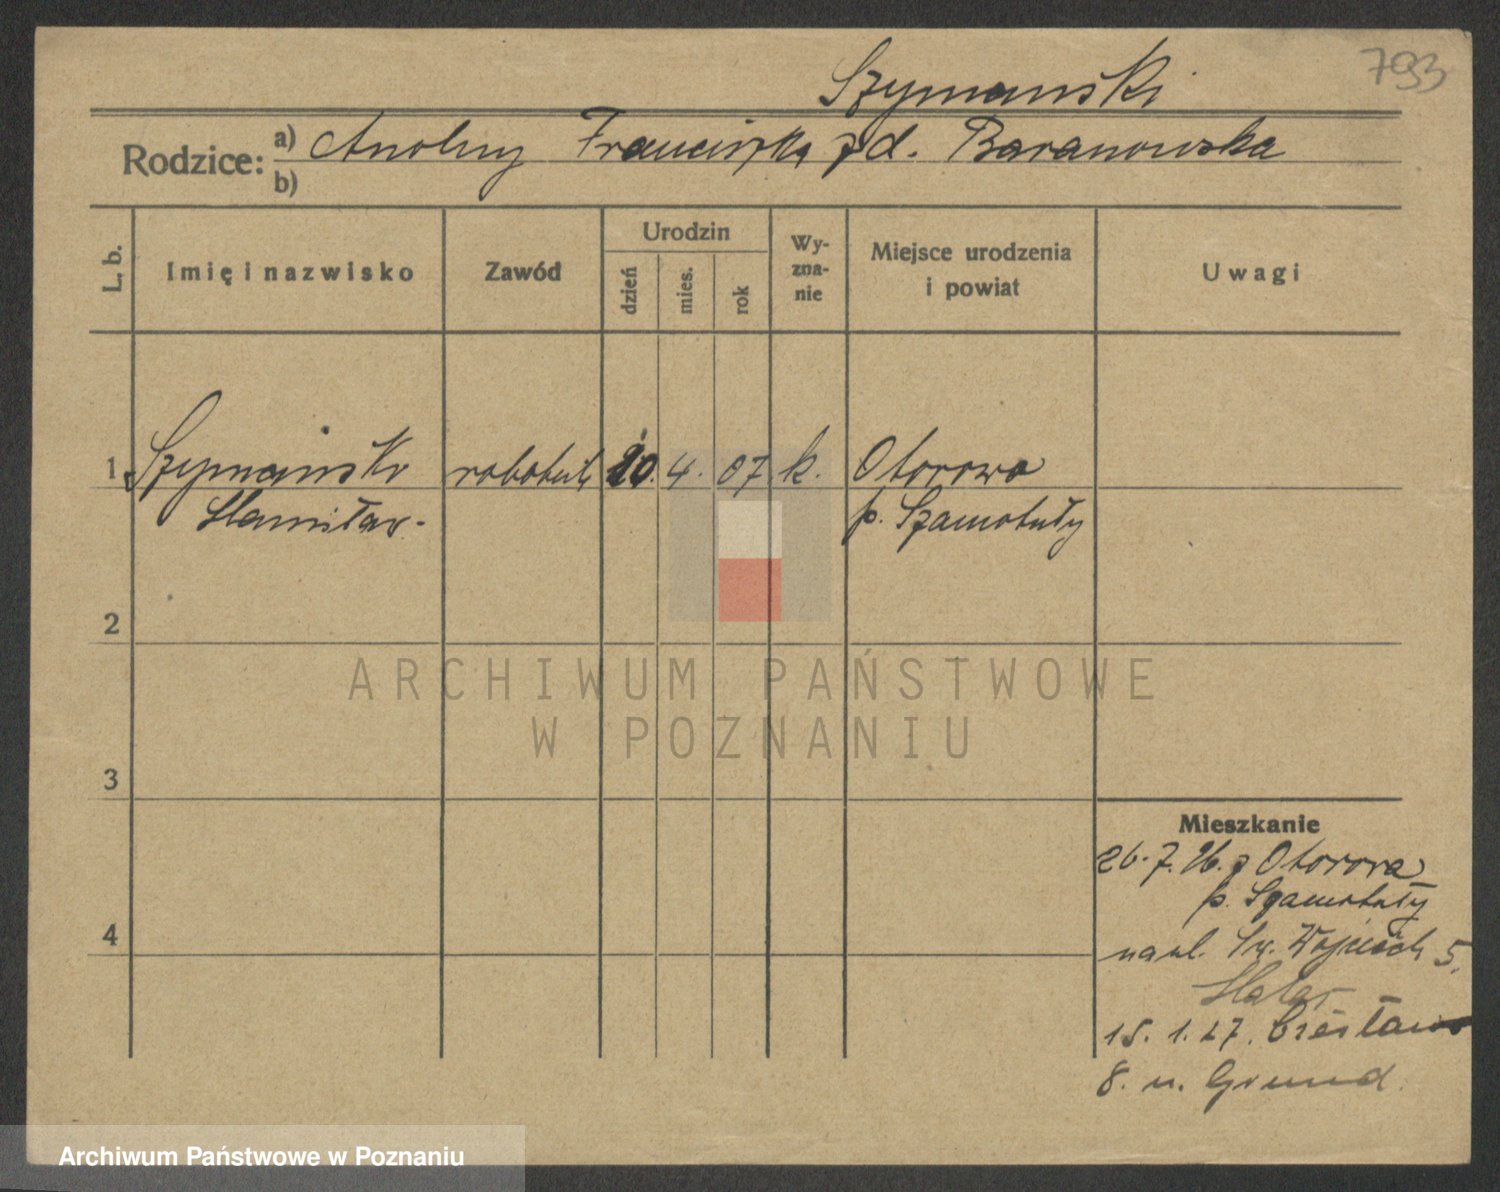 793
Szymański
Rodzice: a) Andrzej Franciszka z d. Baranowska
b)
L. b. Imię i nazwisko Zawód Urodzin dzień mies. rok Wyznanie Miejsce urodzenia i powiat Uwagi
1 Szymański robotnik 20. 4. 07 k. Otorowo
Stanisław. p. Szamotuły
2
ARCHIWUM PAŃSTWOWE
W POZNANIU
3
Mieszkanie
26. 7. 26. z Otorowa
p. Szamotuły
4
na ul. Św. Wojciech 5.
15. 1. 27. Czesława
8. u. Grund.
Archiwum Państwowe w Poznaniu